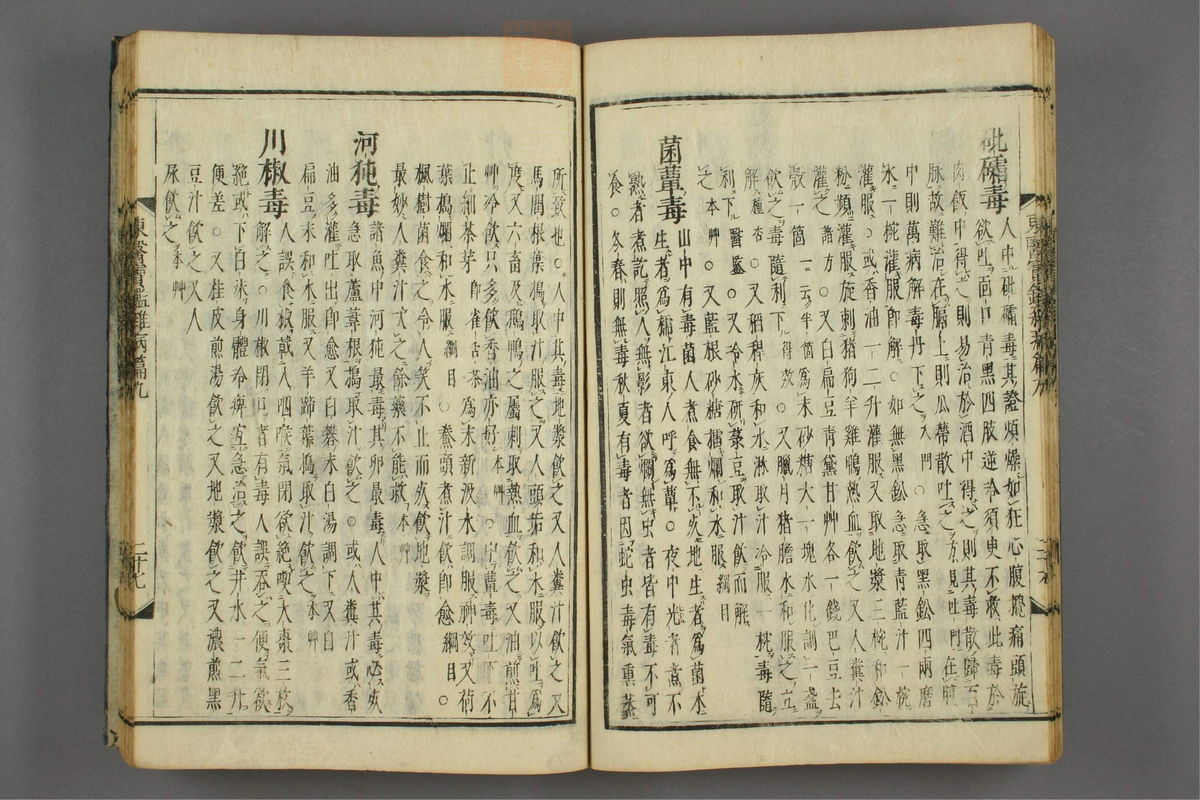 砒礵毒
人中砒礵毒其證煩燥如狂心腹攪痛頭旋
欲吐面口青黑四肢逆冷須臾不救此毒於
肉飮中得之則易治於酒中得之則其毒散歸百
脉故難治在膈上則瓜蔕散吐之在腹
中則萬病解毒丹下之入門○急取黑鉛四兩磨
水一椀灌服卽解○如無黑鉛急取青藍汁一椀
灌服○或香油一二升灌服又取地漿三椀和鉛
粉頻灌服旋刺猪狗羊雞鴨熱血飮之又人糞汁
灌之諸方○又白扁豆青黛甘艸各一錢巴豆去
殼一箇一云半箇爲末砂糖大一塊水化調一盞
飮之毒隨利下得效○又臘月猪膽水和服之立
解種杏○又稻稈灰和水淋取汁冷服一椀毒隨
利下醫鑑○又冷水硏菉豆取汁飮而解
之本艸○又藍根砂糖擂爛和水服綱目
菌蕈毒
山中有毒菌人煮食無不死地生者爲菌木
生者爲檽江東人呼爲蕈○夜中光者煮不
熟者煮訖照人無影者欲爛無虫者皆有毒不可
食○冬春則無毒秋夏有毒者因蛇虫毒氣熏蒸
東醫寶鑑雜病篇九
二十六
所致也○人中其毒地漿飮之又人糞汁飮之又
馬藺根葉搗取汁服之又人頭垢和水服以吐爲
度又六畜及鵝鴨之屬刺取熱血飮之又油煎甘
艸冷飮只多飮香油亦好本艸○中蕈毒吐下不
止細茶芽卽雀舌茶爲末新汲水調服神效又荷
葉搗爛和水服綱目○煮頭煮汁飮卽愈綱目○
楓樹菌食之令人笑不止而死飮地漿
最妙人糞汁次之餘藥不能救本艸
河㹠毒
諸魚中河㹠最毒其卵最毒人中其毒必死
急取蘆葦根搗取汁飮之○或人糞汁或香
油多灌吐出卽愈又白礬末白湯調下又白
扁豆末和水服又羊蹄葉搗取汁飮之本艸
川椒毒
人誤食椒戟人咽喉氣閉欲絶喫大棗三枚
解之○川椒閉口者有毒人誤呑之便氣欲
絶或下白沫身體冷痺宜急治之飮井水一二升
便差○又桂皮煎湯飮之又地漿飮之又濃煎黑
豆汁飮之又人
尿飮之本艸
東醫寶鑑雜病篇九
二十七